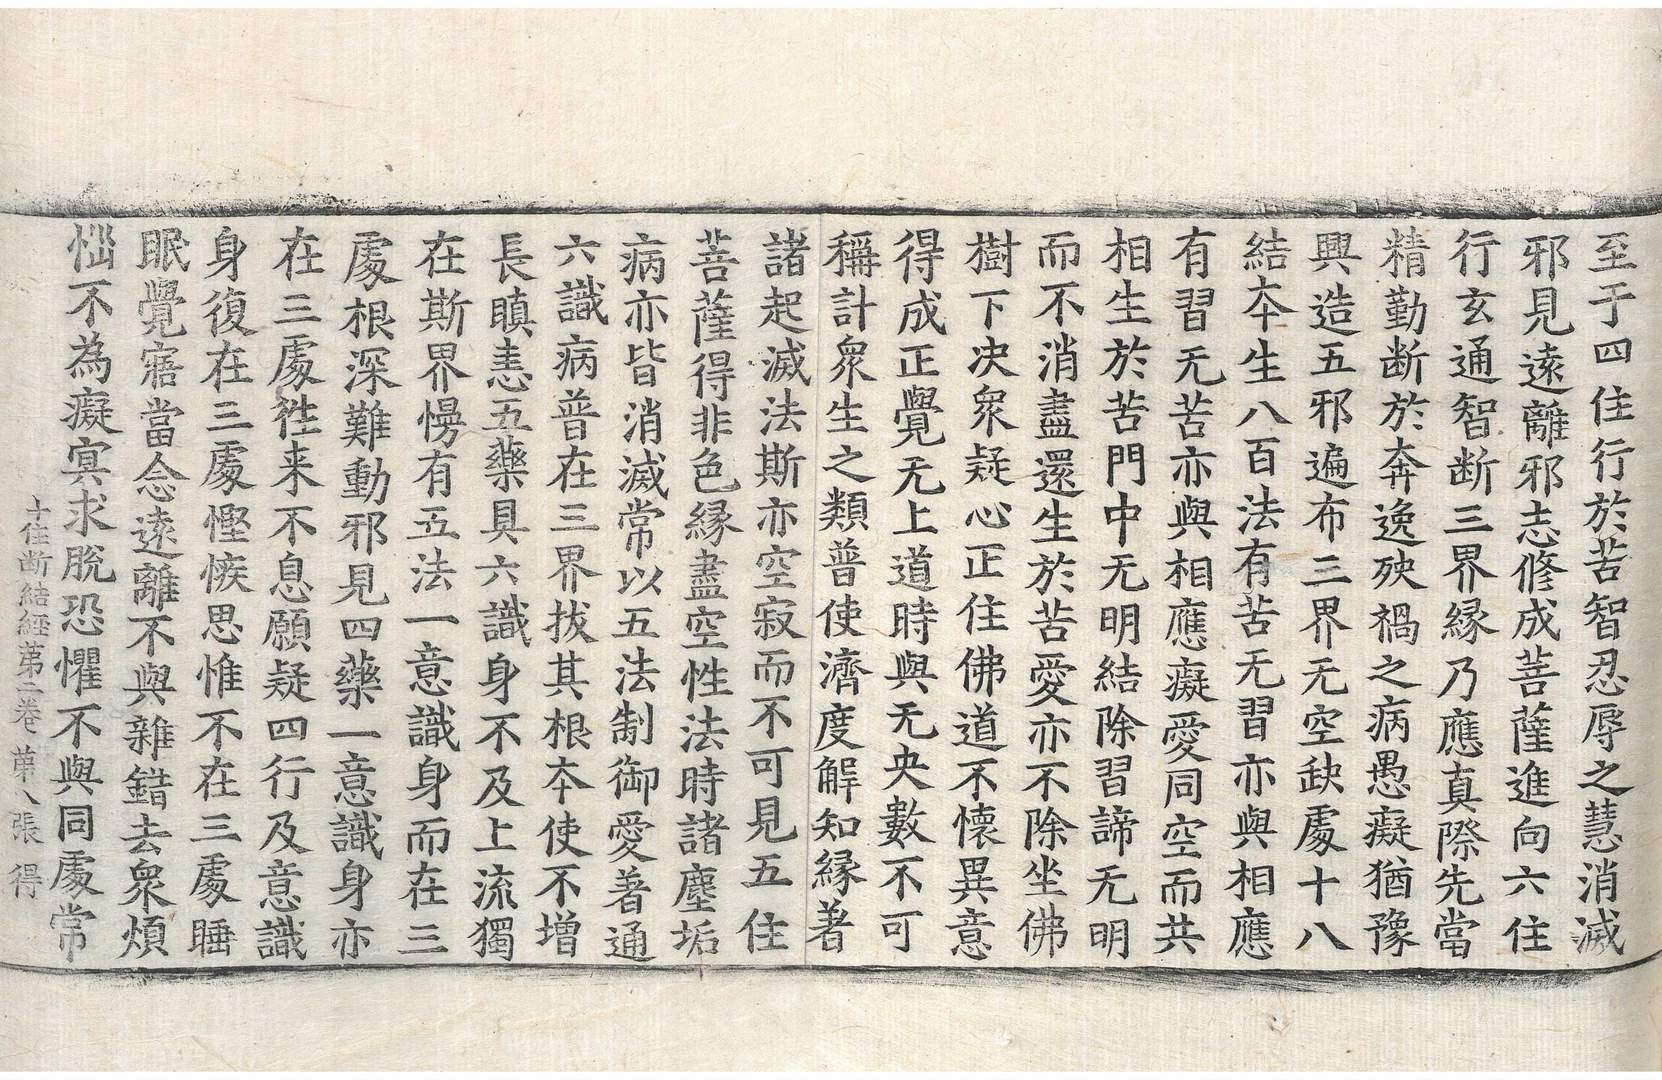 至于四住行於苦智忍辱之慧消滅
邪見遠離邪志修成菩薩進向六住
行玄通智断三界縁乃應真際先當
精勤断於奔逸殃禍之病愚癡猶豫
興造五邪遍布三界无空缺處十八
結夲生八百法有苦无習亦與相應
有習无苦亦與相應癡愛同空而共
相生於苦門中无明結除習諦无明
而不消盡還生於苦愛亦不除坐佛
樹下决衆疑心正住佛道不懷異意
得成正覺无上道時與无央數不可
稱計衆生之類普使濟度解知縁著
諸起滅法斯亦空寂而不可見五住
菩薩得非色縁盡空性法時諸塵垢
病亦皆消滅常以五法制御愛著通
六識病普在三界拔其根夲使不增
長瞋恚五藥具六識身不及上流獨
在斯界慢有五法一意識身而在三
處根深難動邪見四藥一意識身亦
在三處徃来不息願疑四行及意識
身復在三處慳嫉思惟不在三處睡
眠覺寤當念遠離不與雜錯去衆煩
惱不為癡冥求脫恐懼不與同處常
十住断結經苐二卷 苐八張 得